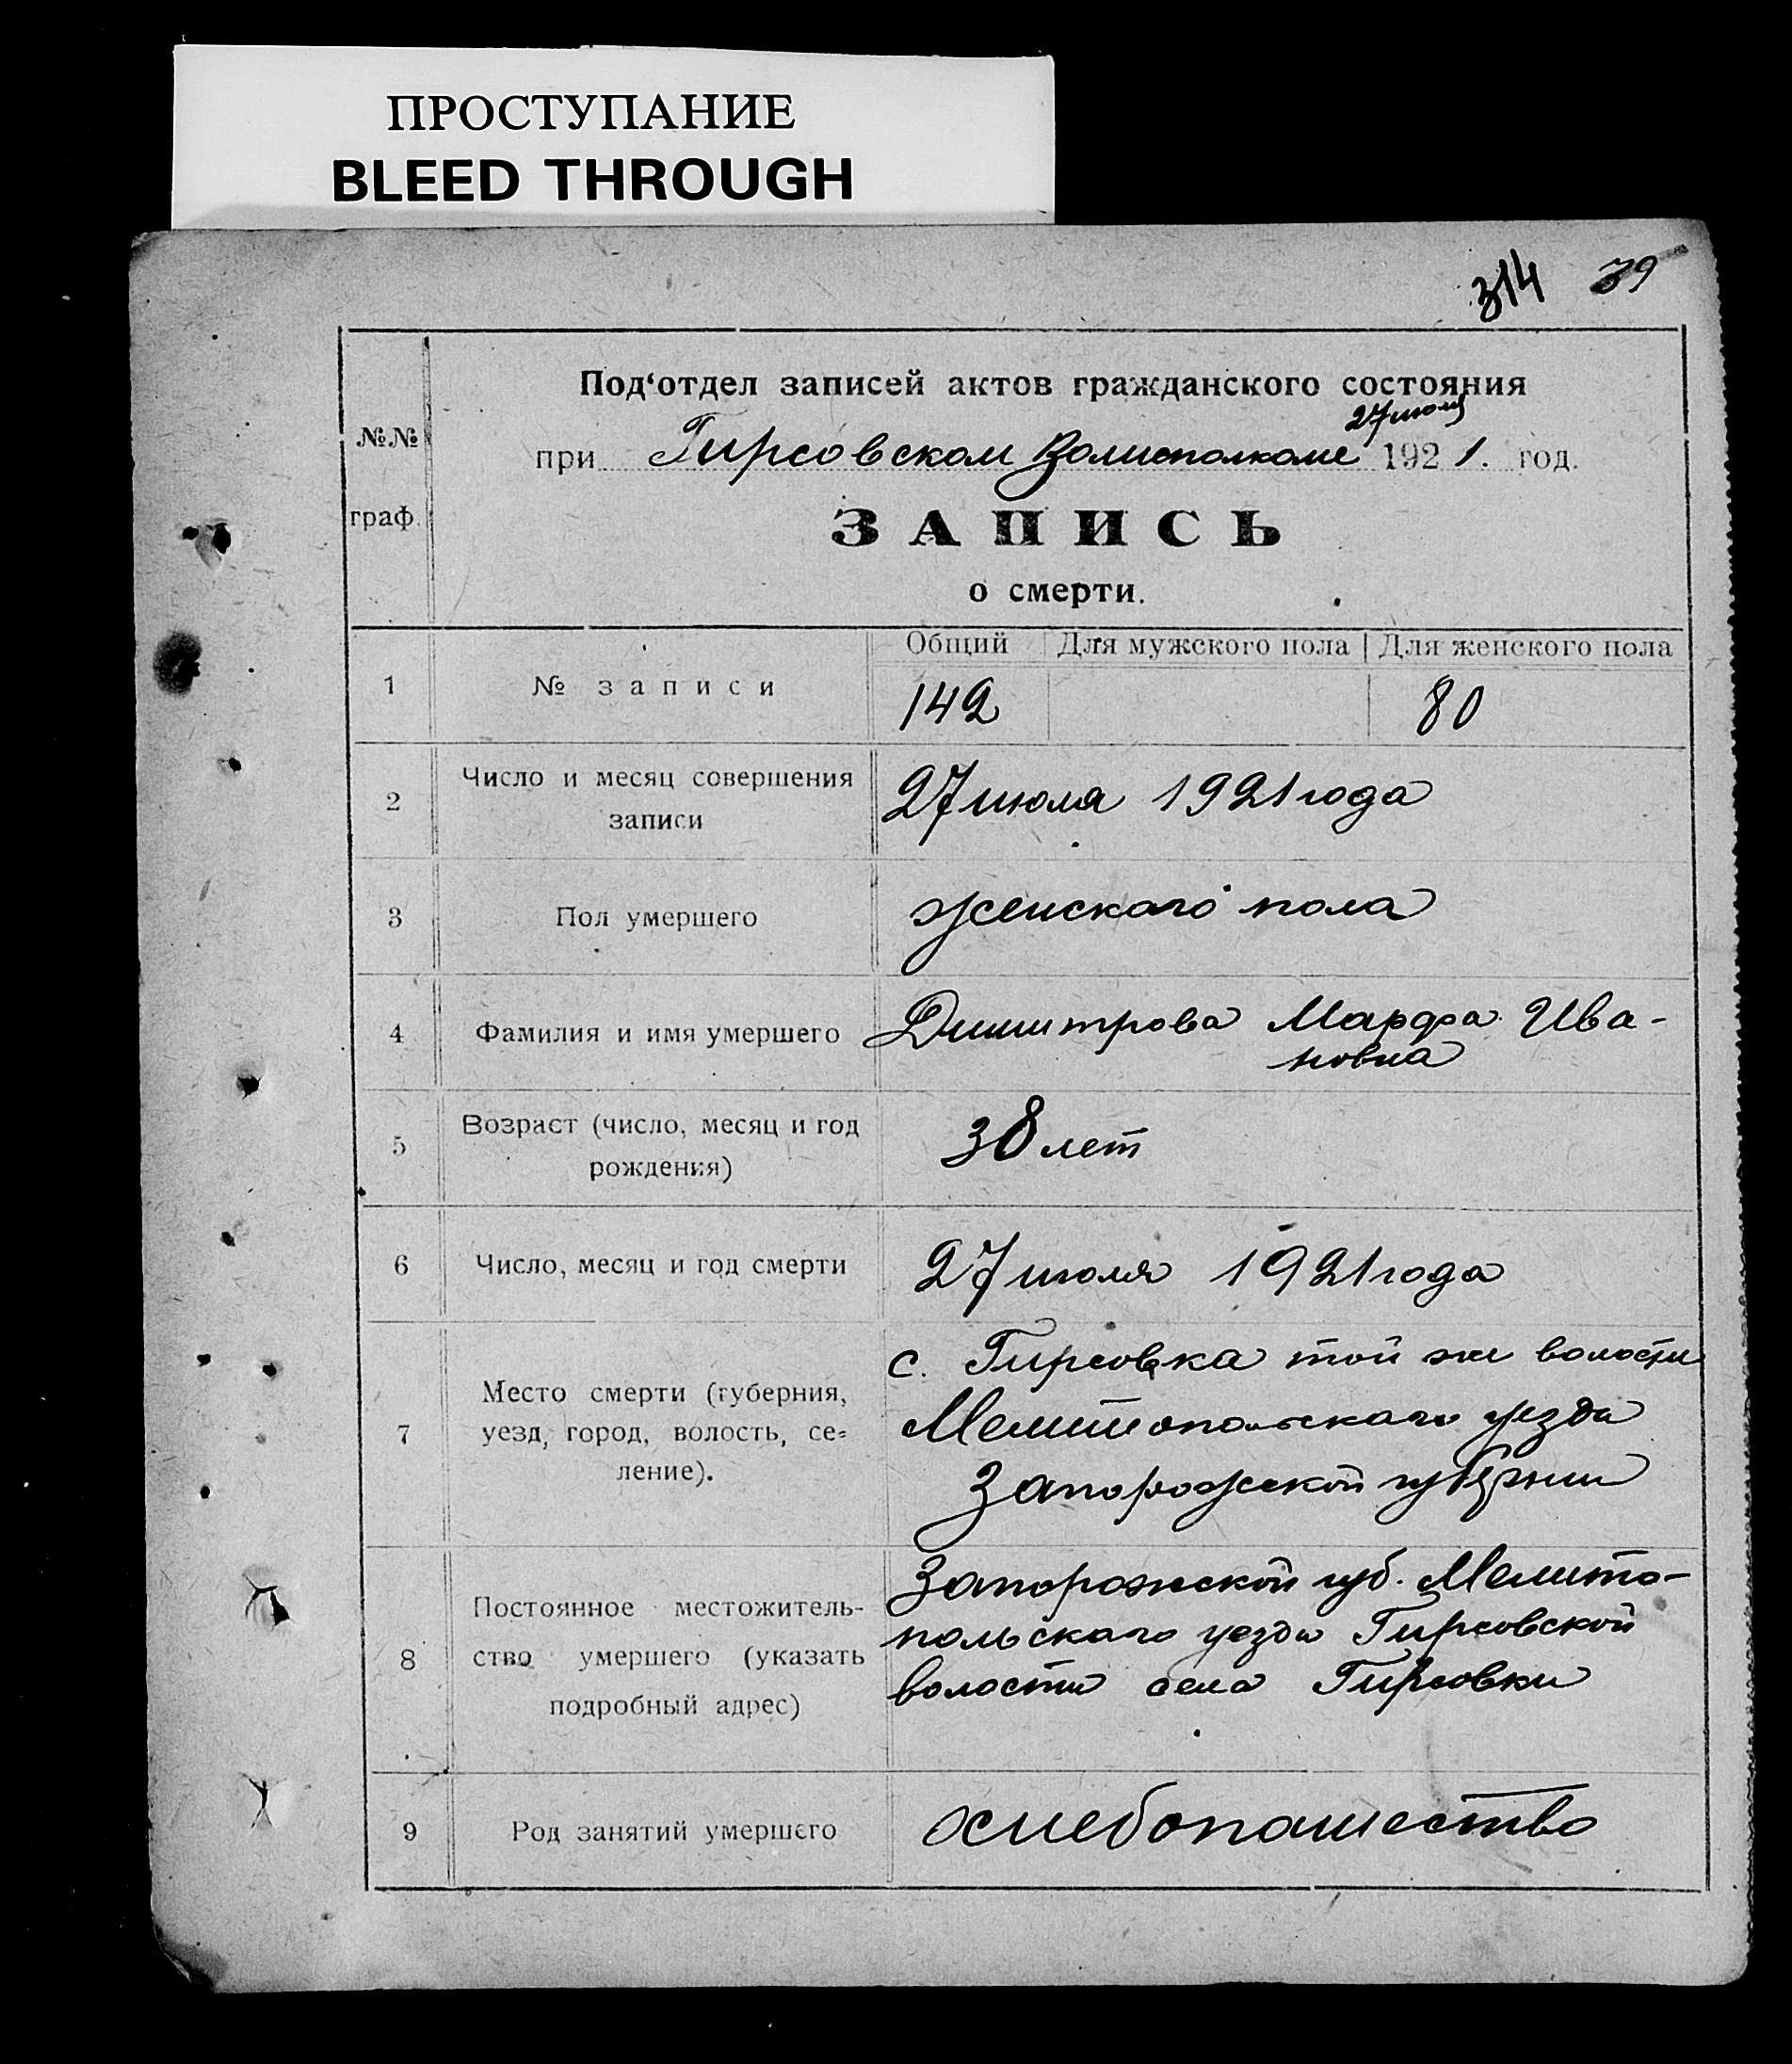 ПРОСТУПАНИЕ
BLEED THROUGH
314 39
Под‘отдел записей актов гражданского состояния
27 июля
при Гирсовском Волисполкоме 1921. год.
№№
граф.
ЗАПИСЬ
о смерти.
Общий Для мужского пола Для женского пола
1 № записи 142 80
2 Число и месяц совершения
записи
27 июля 1921 года
3 Пол умершего женскаго пола
4 Фамилия и имя умершего Димитрова Марфа Ива-
новна
5 Возраст (число, месяц и год
рождения)
38 лет
6 Число, месяц и год смерти 27 июля 1921 года
7 Место смерти (губерния,
уезд, город, волость, се=
ление).
с. Гирсовка той же волости
Мелитопольскаго уезда
Запорожской губернии
8 Постоянное местожитель-
ство умершего (указать
подробный адрес)
Запорожской губ. Мелито-
польскаго уезда Гирсовской
волости села Гирсовки
9 Род занятий умершего хлебопашество